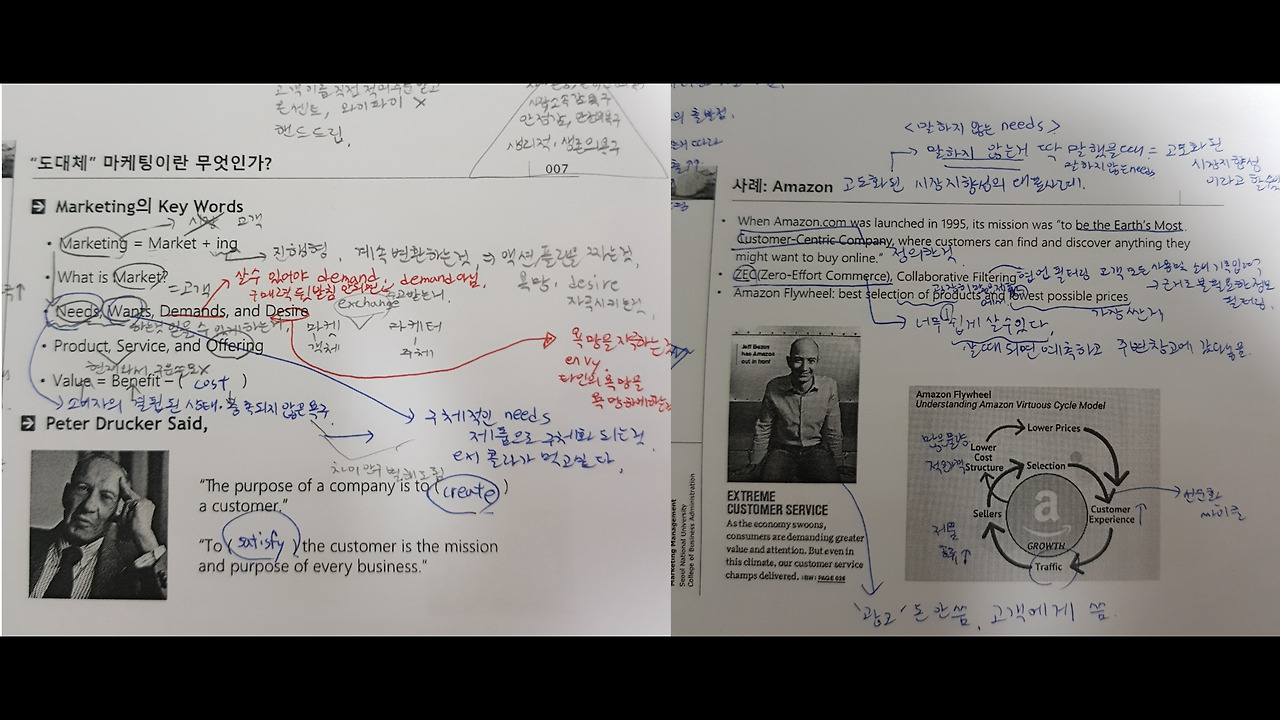 콘센트, 와이파이 X
핸드드립,
생리적, 생존의 욕구
"도대체" 마케팅이란 무엇인가?
007
Marketing의 Key Words
고객
• Marketing = Market + ing
진행형, 계속 변환하는것 ⇒ 액션플랜을 짜는것,
• What is Market?
= 고객
살수 있어야 demand, demand 아님
욕망, desire
자극시키는것,
exchange
• Needs, Wants, Demands, and Desire
마케
객체
라케터
주체
• Product, Service, and Offering
욕망을 자극하는
envy.
타인의 욕망을
욕망하게하는
• Value = Benefit – ( cost )
소비자의 결핍된 상태. 충족되지 않은 욕구
구체적인 needs
제품으로 구체화 되는것.
ex) 콜라가 먹고싶다,
Peter Drucker Said,
"The purpose of a company is to ( create )
a customer."
"To ( satisfy ) the customer is the mission
and purpose of every business."
의 출발점.
<말하지 않는 needs>
말하지 않는것 딱 말했을때 = 고도화된
말하지않는 needs
시장지향성
이라고 할수
사례: Amazon
고도화된 시장지향성의 대표사례.
• When Amazon.com was launched in 1995, its mission was "to be the Earth's Most
Customer-Centric Company, where customers can find and discover anything they
might want to buy online."
정의한것
• ZEC(Zero-Effort Commerce), Collaborative Filtering
• Amazon Flywheel: best selection of products and lowest possible prices
가장싼거
너무 쉽게 살수있다,
살때 되면 예측하고 주변창고에 갖다놓음
Jeff Bezos
has Amazon
out in front
EXTREME
CUSTOMER SERVICE
As the economy swoons,
consumers are demanding greater
value and attention. But even in
this climate, our customer service
champs delivered. (BW) PAGE 026
Marketing Management
Seoul National University
College of Business Administration
Amazon Flywheel
Understanding Amazon Virtuous Cycle Model
Lower Prices
많은물량
적은가격
Lower
Cost
Structure
Selection
Sellers
a
Customer
Experience ↑
선순환
싸이클
제품
GROWTH
Traffic
'광고' 돈 안씀, 고객에게 씀.